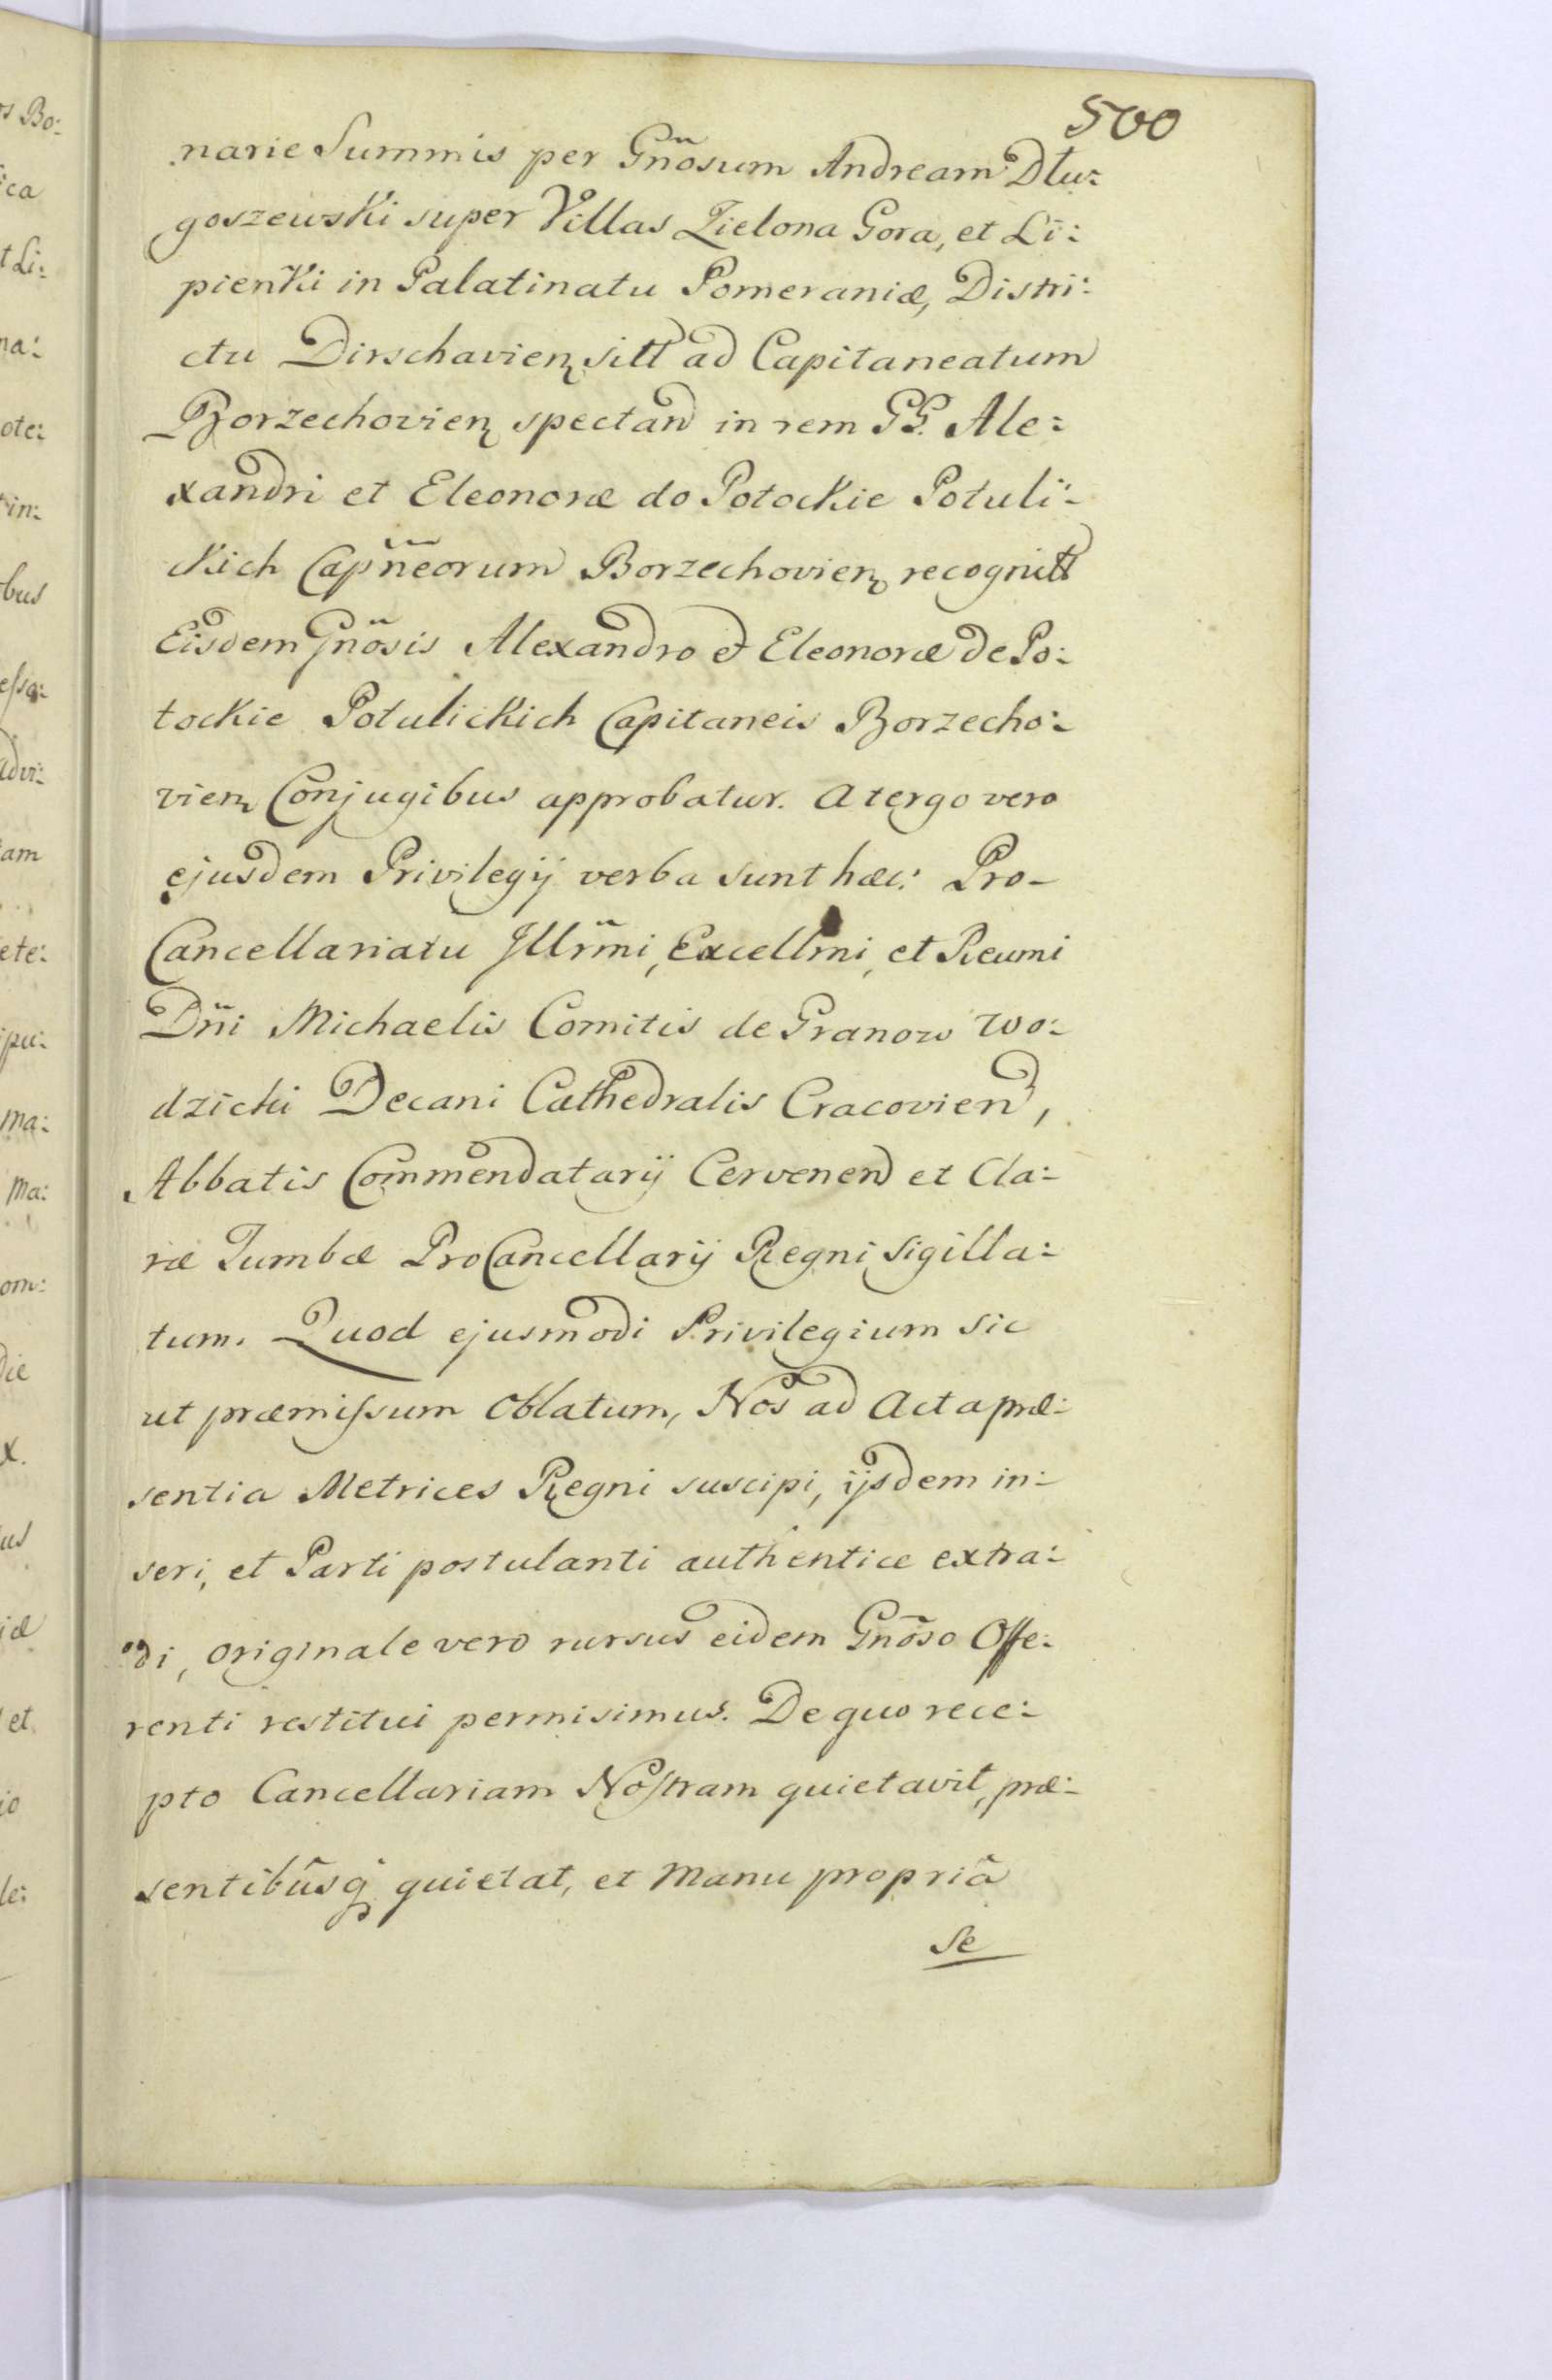 500
narie Summis per Gn̈osum Andream Dłu:
goszewski super Villas Zielona Gora, et Li:
pienki in Palatinatu Pomeraniæ, Distri:
ctu Dirschavien sitt ad Capitaneatum
Borzechovien spectan in rem GG. Ale:
xandri et Eleonoræ do Potockie Potuli:
ckich Capn̈eorum Borzechovien recognitt
Eisdem Gn̈osis Alexandro et Eleonoræ de Po:
tockie Potulickich Capitaneis Borzecho:
vien Conjugibus approbatur. A tergo vero
ejusdem Privilegij verba sunt hæc: Pro-
Cancellariatu Illrm̈i, Excellmi, et Reumi
Dn̈i Michaelis Comitis de Granow Wo:
dzicki Decani Cathedralis Cracovien,
Abbatis Commendatarij Cervenen et Cla:
ræ Tumbæ ProCancellarij Regni Sigilla:
tum. Quod ejusmodi Privilegium sic
ut præmissum oblatum, Nos ad Acta præ:
sentia Metrices Regni suscipi, ijsdem in:
seri, et Parti postulanti authentice extra:
di, originale vero rursus eidem Gnõso Offe:
renti restitui permisimus. De quo rece:
pto Cancellariam Nostram quietavit, præ:
sentibusq quietat, et Manu propriâ
Se
os Bo:
ica
t Li:
na:
ote:
rin:
obus
essa:
advi:
iam
ete:
ipu:
ma:
Ma:
om:
die
x.
us
iæ
et
io
le: